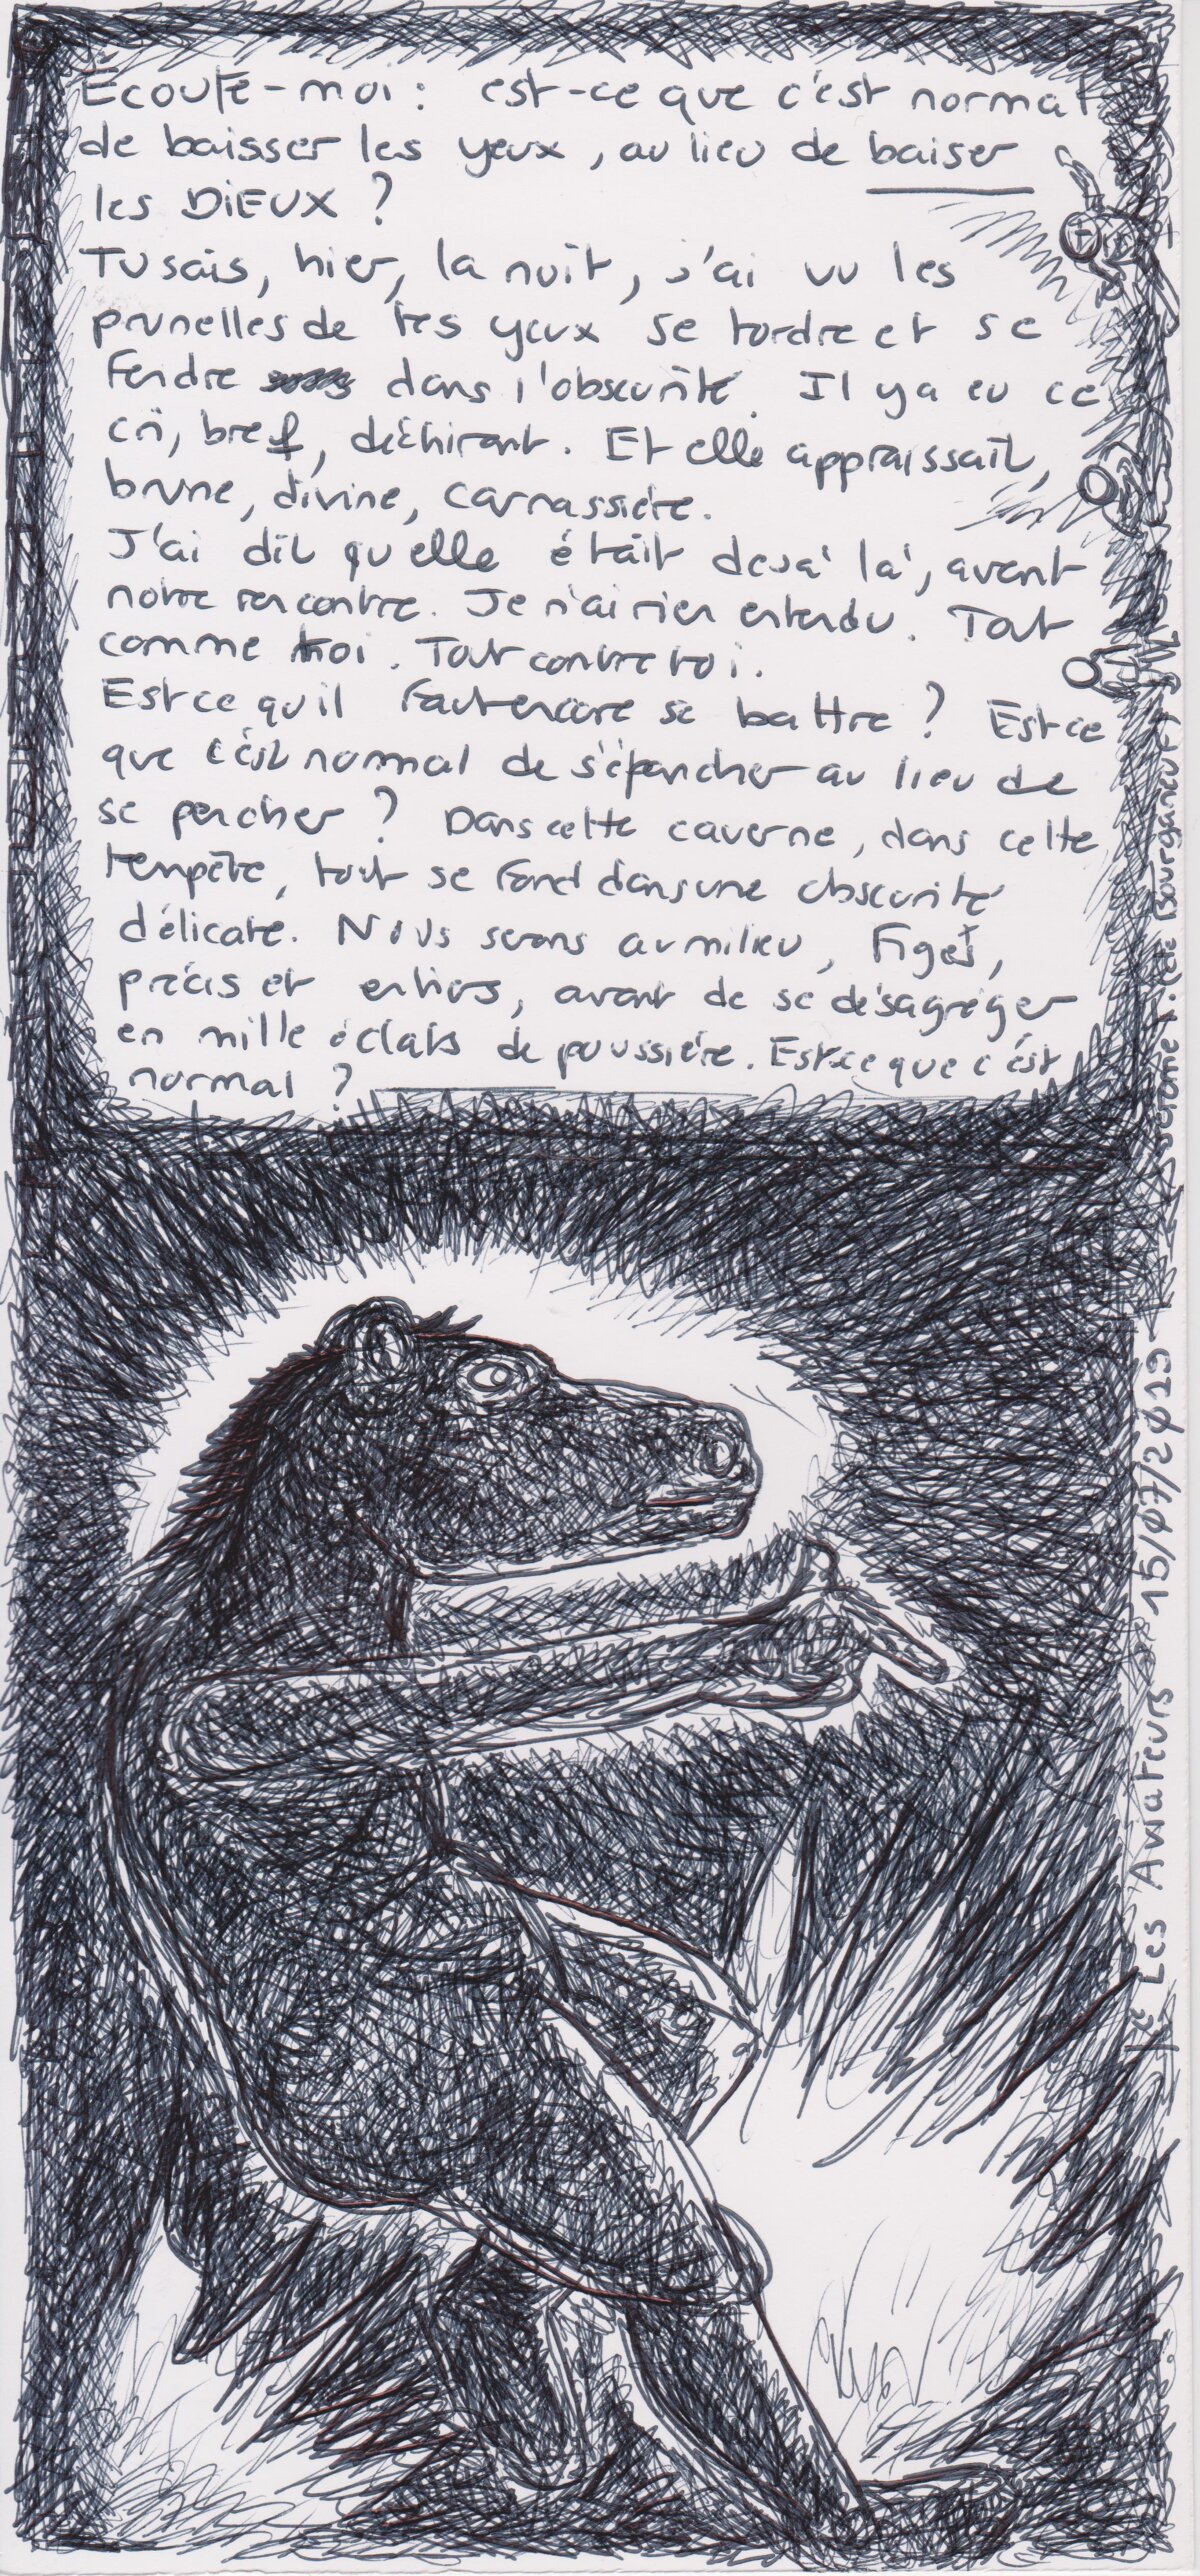 Écoute-moi : est-ce que c'est normal
de baisser les yeux, au lieu de baiser
les DIEUX ?
Tu sais, hier, la nuit, j'ai vu les
prunelles de tes yeux se tordre et se
fendre dans l'obscurité. Il y a eu ce
cri, bref, déchirant. Et elle appraissait,
brune, divine, carnassière.
J'ai dit qu'elle était déjà là, avant
notre rencontre. Je n'ai rien entendu. Tout
comme toi. Tout contre toi.
Est ce qu'il faut encore se battre ? Est ce
que c'est normal de s'épancher au lieu de
se percher ? Dans cette caverne, dans cette
tempête, tout se fond dans une obscurité
délicate. Nous serons au milieu, figés,
précis et entiers, avant de se désagréger
en mille éclats de poussière. Est ce que c'est
normal ?
Les Aviateurs 15/07/2019 Jérôme Bourganeuf